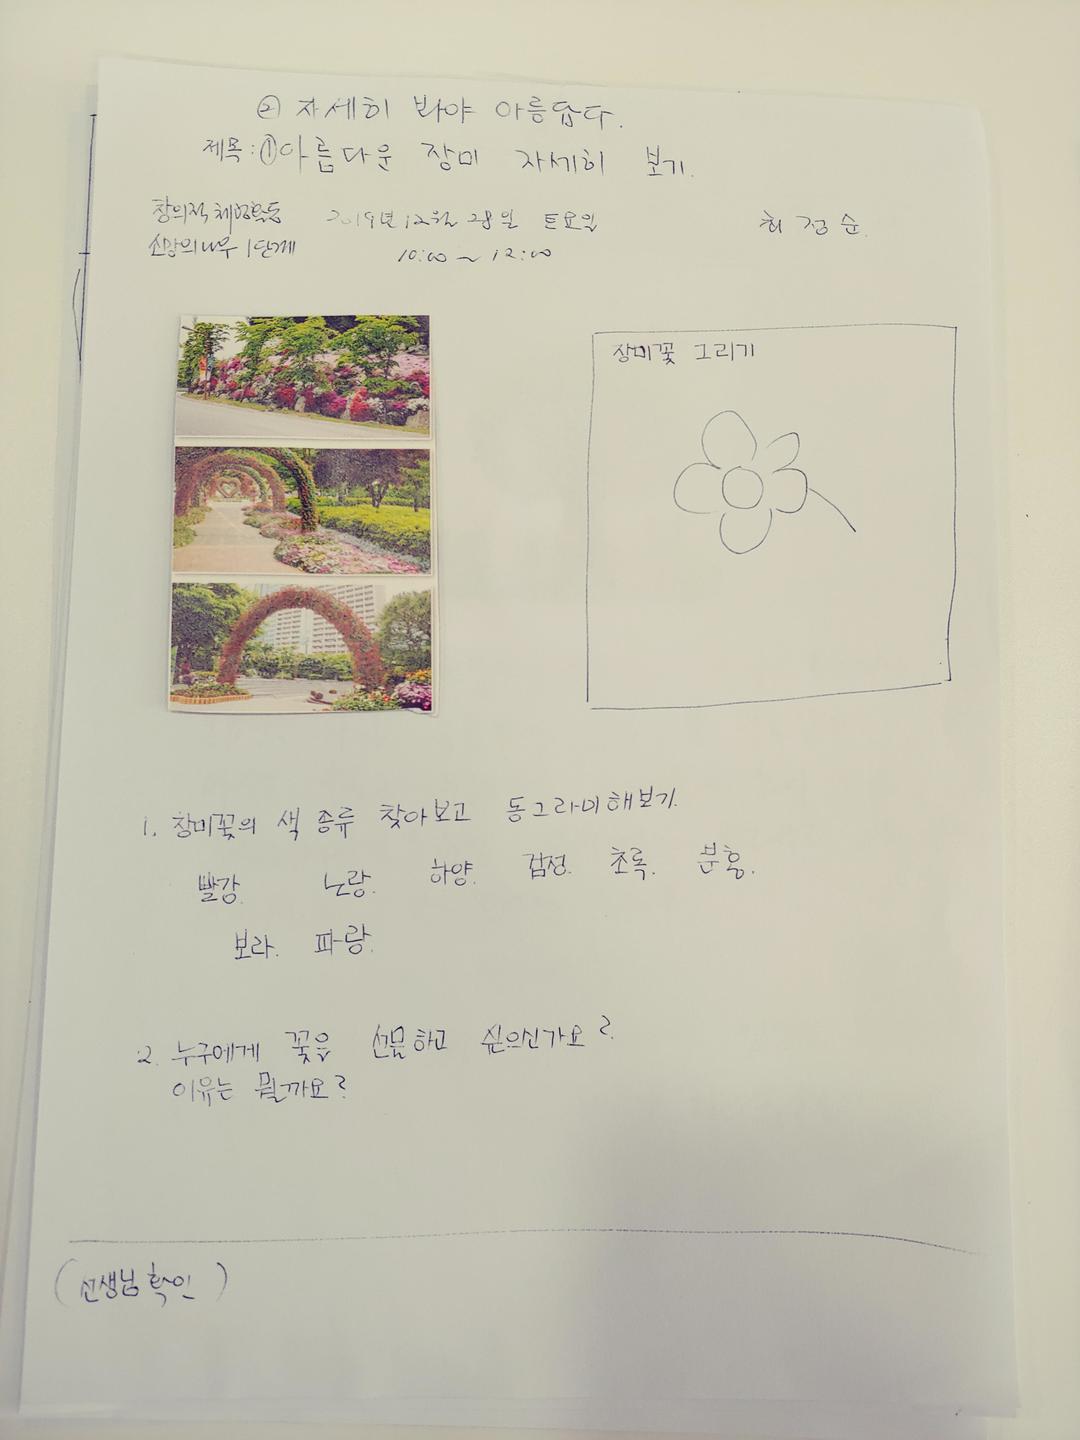 ② 자세히 봐야 아름답다.
제목:①아름다운 장미 자세히 보기.
창의적 체험활동 2019년 12월 28일 토요일 최정순.
소망의나무 1단계 10:00 ~ 12:00
장미꽃 그리기
1. 장미꽃의 색 종류 찾아보고 동그라미해보기.
빨강. 노랑. 하양. 검정. 초록. 분홍.
보라. 파랑.
2. 누구에게 꽃을 선물하고 싶으신가요?
이유는 뭘까요?
(선생님확인)